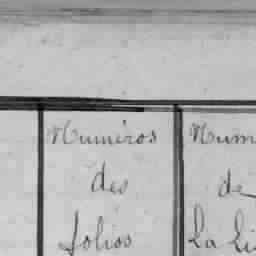 Numéros
des
folios
Num
de
La Li